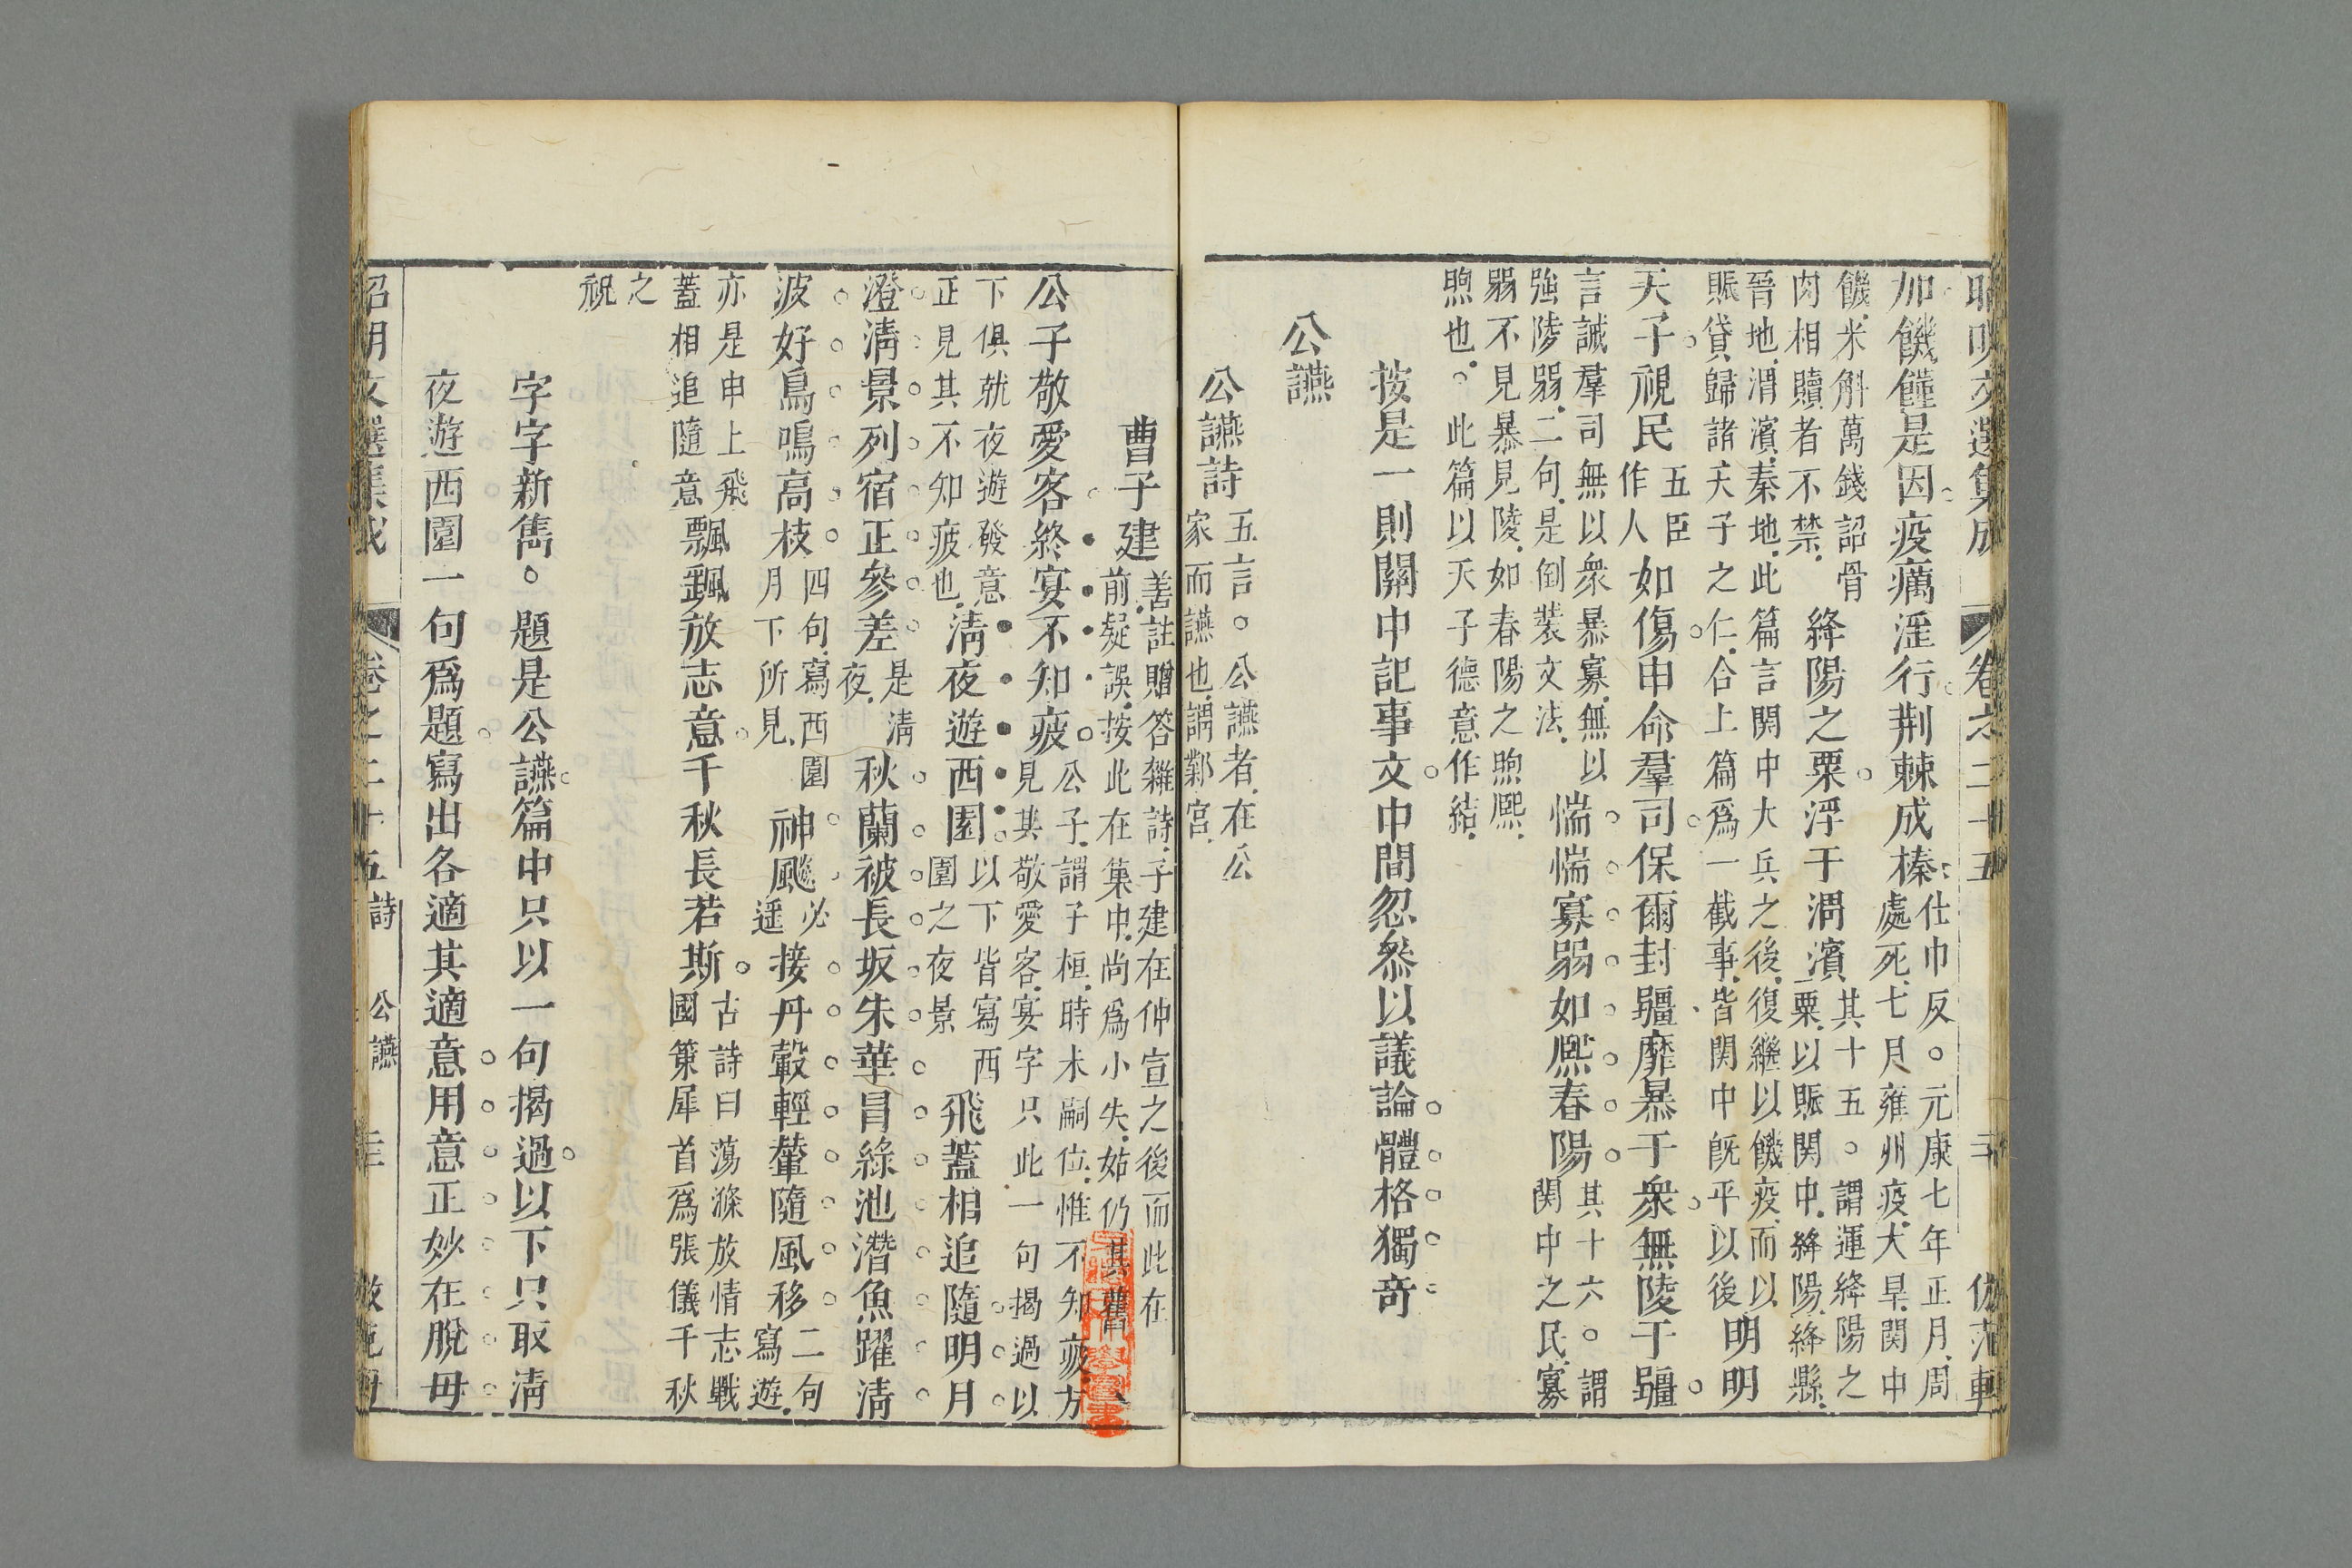 昭明文選集成 卷之二十五 三十 倣范軒
加饑饉是因疫癘淫行荆棘成榛仕巾反。元康七年正月周處死七月雍州疫大旱関中
饑米斛萬錢詔骨肉相贖者不禁絳陽之粟浮于渭濱其十五。謂運絳陽之粟以賑関中絳陽絳縣
晉地渭濱秦地此篇言関中大兵之後復繼以饑疫而以賑貸歸諸天子之仁合上篇爲一截事皆関中旣平以後明明
天子視民五臣作人如傷申命羣司保爾封疆靡暴于衆無陵于疆
言誡羣司無以衆暴寡無以強陵弱二句是倒裝文法惴惴寡弱如熙春陽其十六。謂関中之民寡
弱不見暴見陵如春陽之煦熙煦也。此篇以天子德意作結
按是一則關中記事文中間忽叅以議論體格獨奇
公讌
公讌詩五言。公讌者在公家而讌也謂鄴宮
曹子建善註贈答雜詩子建在仲宣之後而此在前疑誤按此在集中尚爲小失姑仍其舊
公子敬愛客終宴不知疲公子謂子桓時未嗣位惟不知疲方見其敬愛客宴字只此一句揭過以
下俱就夜遊發意正見其不知疲也清夜遊西園以下皆寫西園之夜景飛蓋相追隨明月
澄清景列宿正參差是清夜秋蘭被長坂朱華冒綠池潛魚躍清
波好鳥鳴高枝四句寫西園月下所見神飈必遥接丹轂輕輦隨風移二句寫遊
亦是申上飛蓋相追隨意飄飖放志意千秋長若斯古詩曰蕩滌放情志戰國策犀首爲張儀千秋
之祝
字字新雋。題是公讌篇中只以一句揭過以下只取清
夜遊西園一句爲題寫出各適其適意用意正妙在脫母
昭明文選集成 卷之二十五 詩 公讌